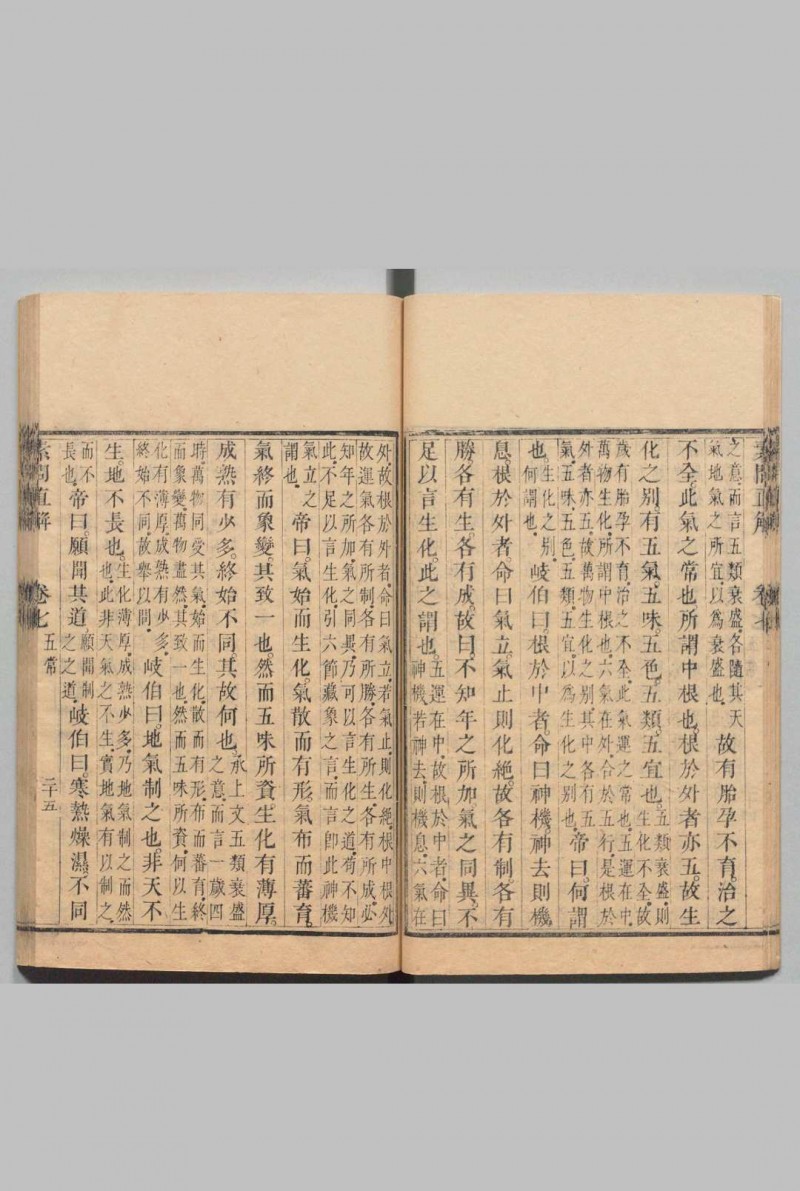 素問直解 卷七
之意而言五類衰盛各隨其天
氣地氣之所宜以爲衰盛也
故有胎孕不育治之
不全此氣之常也所謂中根也根於外者亦五故生
化之別有五氣五味五色五類五宜也
五類衰盛則
生化不全故
歲有胎孕不育治之不全此氣運之常也五運在中
萬物生化所謂中根也六氣在外合於五行是根於
外者亦五故萬物生化之別其中各有五
氣五味五色五類五宜以爲生化之別也
帝曰何謂
也
生化之別
何謂也
岐伯曰根於中者命曰神機神去則機
息根於外者命曰氣立氣止則化絕故各有制各有
勝各有生各有成故曰不知年之所加氣之同異不
足以言生化此之謂也
五運在中故根於中者命曰
神機若神去則機息六氣在
外故根於外者命曰氣立若氣止則化絕根中根外
故運氣各有所制各有所勝各有所生各有所成必
知年之所加氣之同異乃可以言生化之道苟不知
此不足以言生化引六節藏象之言而言卽此神機
氣立之
謂也
帝曰氣始而生化氣散而有形氣布而蕃育
氣終而象變其致一也然而五味所資生化有薄厚
成熟有少多終始不同其故何也
承上文五類衰盛
之意而言一歲四
時萬物同受其氣始而生化散而有形布而蕃育終
而象變萬物盡然其致一也然而五味所資何以生
化有薄厚成熟有少多
終始不同故舉以問
岐伯曰地氣制之也非天不
生地不長也
生化薄厚成熟少多乃地氣制之而然
也此非天氣之不生實地氣有以制之
而不
長也
帝曰願聞其道
願聞制
之之道
岐伯曰寒熱燥濕不同
素問直解 卷七 五常 二十五